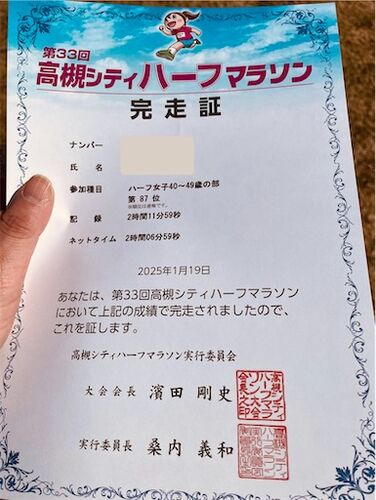 第33回
高槻シティハーフマラソン
完走証
ナンバー
氏名
参加種目 ハーフ女子40〜49歳の部
第 87 位
記録 2時間11分59秒
ネットタイム 2時間06分59秒
2025年1月19日
あなたは、第33回高槻シティハーフマラソン
において上記の成績で完走されましたので、
これを証します。
高槻シティハーフマラソン実行委員会
大会会長 濱田剛史
実行委員長 桑内義和